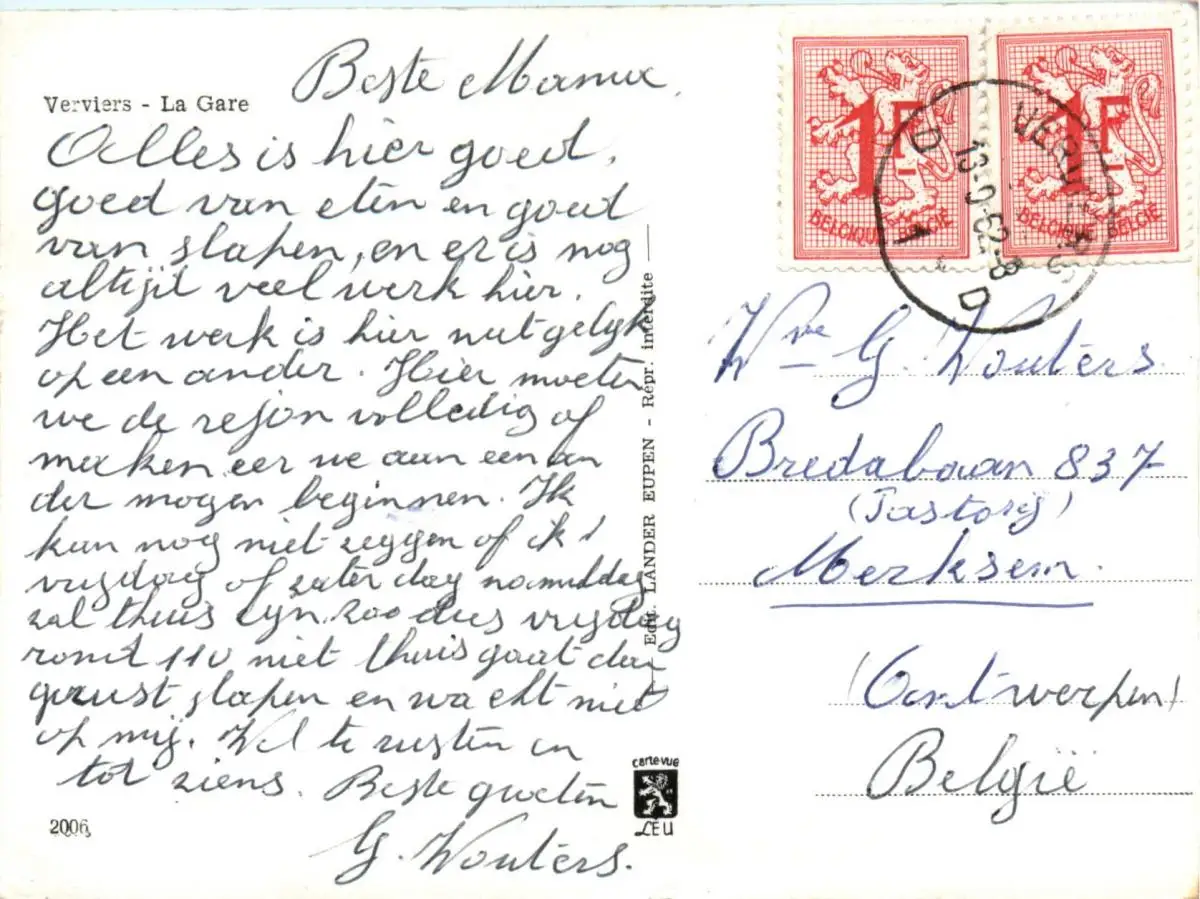 Verviers - La Gare
Beste Mama,
Alles is hier goed,
goed van eten en goed
van slapen, en er is nog
altijd veel werk hier.
Het werk is hier niet gelijk
op een ander. Hier moeten
we de rejon volledig af
maken eer we aan een an
der mogen beginnen. Ik
kan nog niet zeggen of ik
vrijdag of zaterdag namiddag
zal thuis zijn zoo dus vrijdag
rond 110 niet thuis gaat dan
gerust slapen en wacht niet
op mij. Wel te rusten en
tot ziens. Beste groeten
G. Wouters.
2006
Edit. LANDER EUPEN - Repr. interdite
carte vue
LEU
1F
BELGIQUE BELGIË
1F
BELGIQUE BELGIË
VERVIERS
13-9-62-8
D 1 D
Wwe G. Wouters
Bredabaan 837
(Pastorij)
Merksem.
(Antwerpen)
België